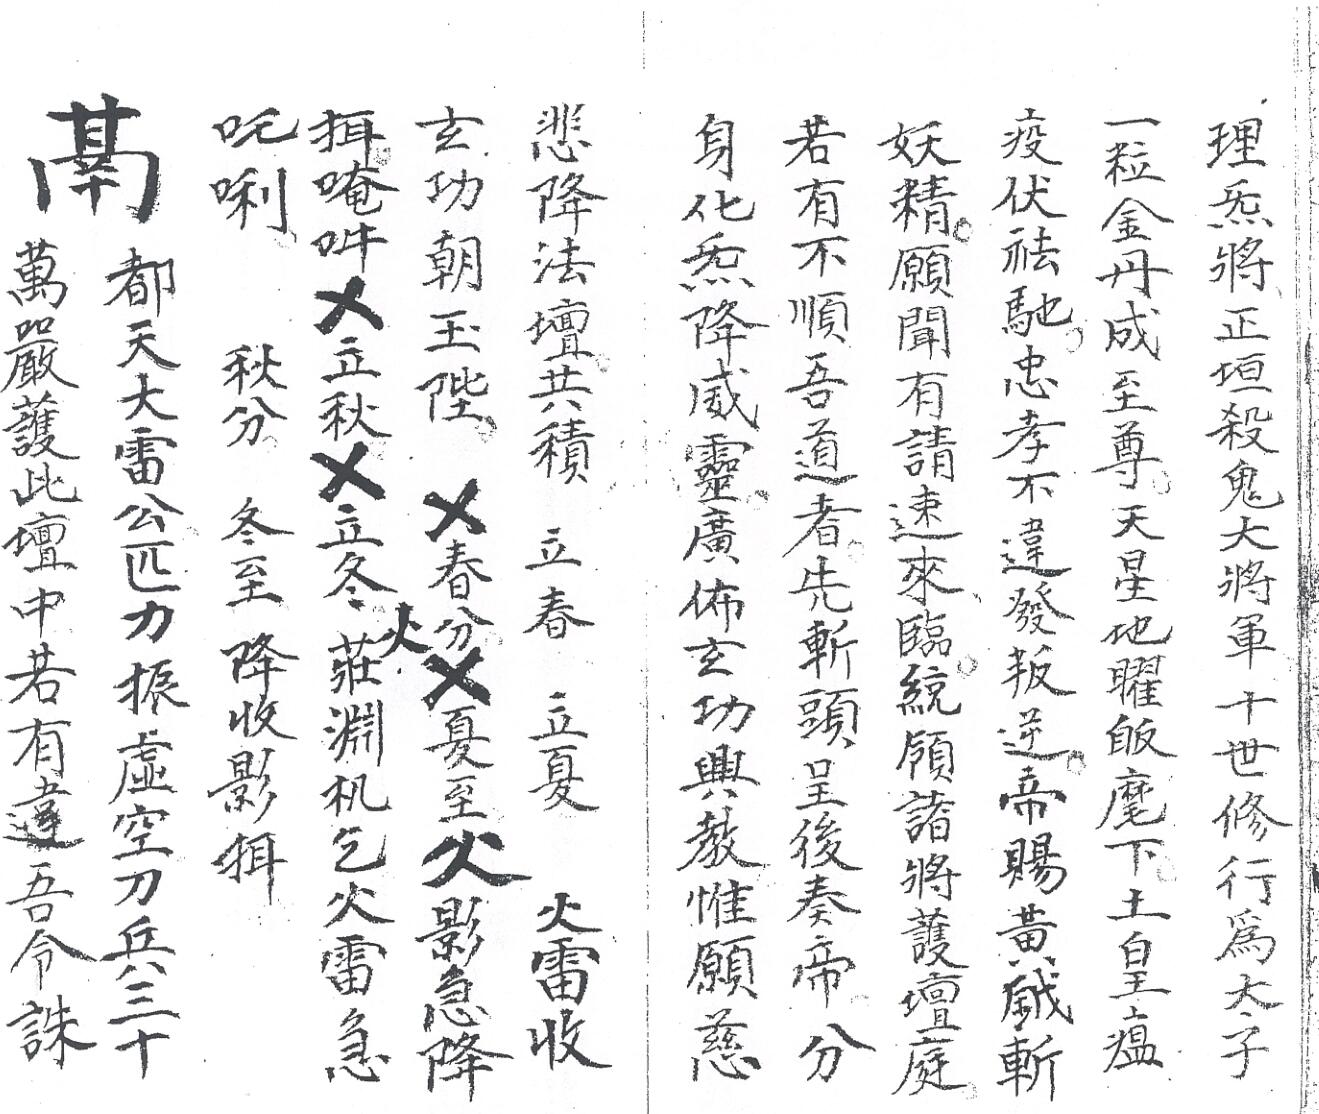 理炁將正垣殺鬼大將軍十世修行爲太子
一粒金丹成至尊天星地曜皈麾下土皇瘟
疫伏袪馳忠孝不違發叛逆帝賜黃鉞斬
妖精願聞有請速來臨統領諸將護壇庭
若有不順吾道者先斬頭呈後奏帝分
身化炁降威靈廣佈玄功興教惟願慈
悲降法壇共積 立春 立夏 火雷收
玄功朝玉陛 乂春分乂夏至火影急降
挕唵吽乂立秋乂立冬火莊淵机乞火雷急
吒唎 秋分 冬至 降收影挕
都天大雷公匹力振虛空刀兵三十
萬嚴護此壇中若有違吾令誅